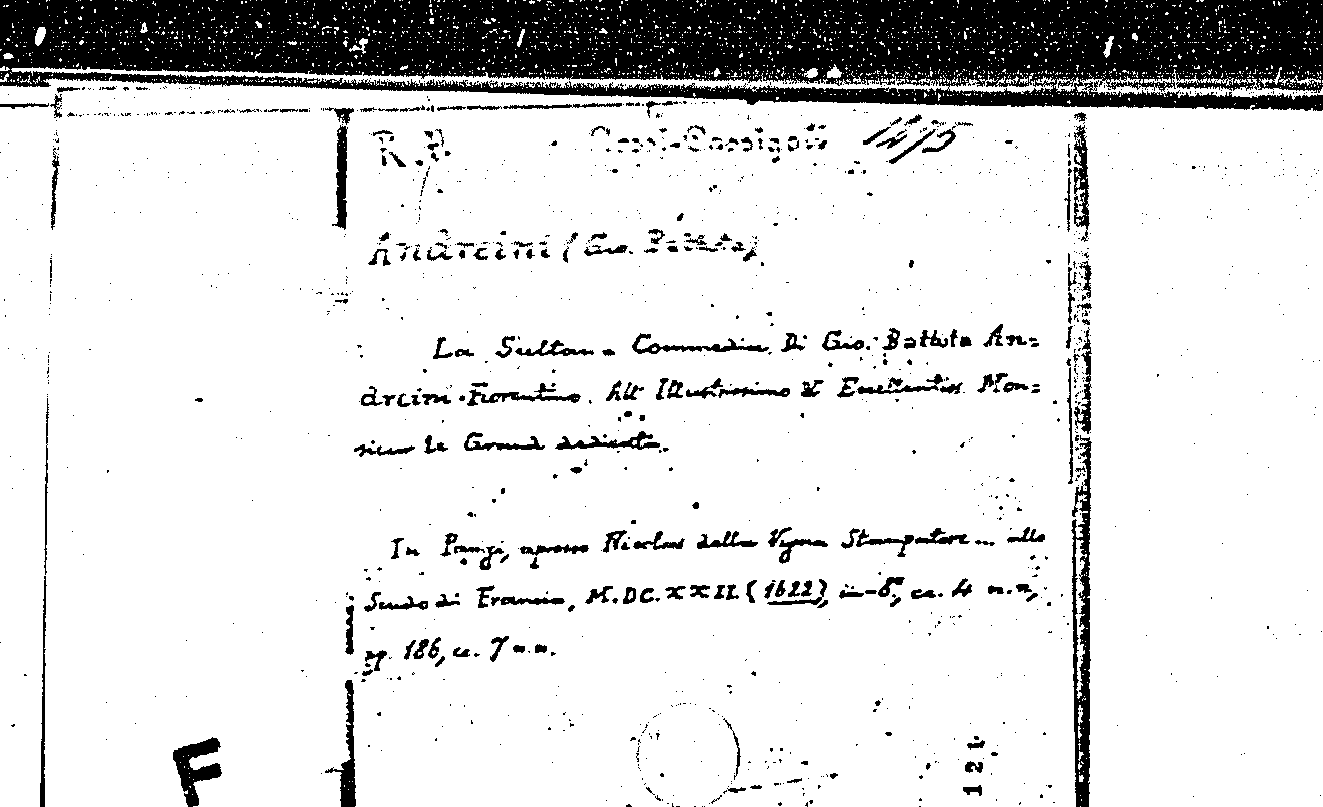 R. B. Rossi-Cassigoli 1275
Andreini (Gio. Battista)
La Sultana Commedia Di Gio. Battista An=
dreini Fiorentino. All' Illustrissimo et Eccellentiss. Mon=
sieur le Grand dedicata.
In Parigi, apresso Nicolas della Vigna Stampatore... allo
Scudo di Francia, M.DC.XXII. (1622), in-8°, cc. 4 n.n,
pp. 186, cc. 7 n.n.
F
121